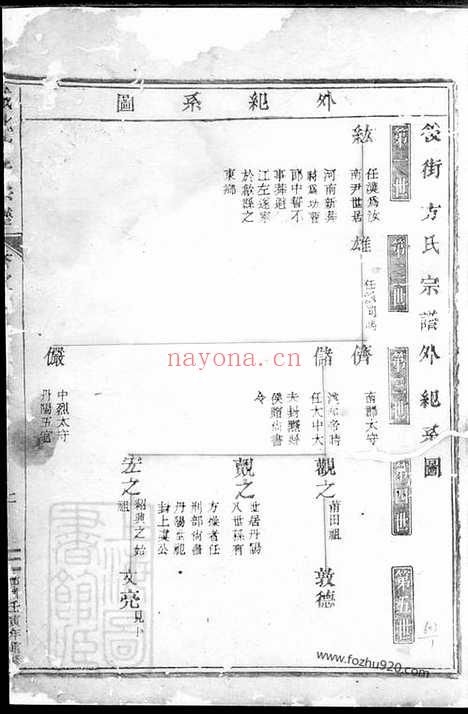 外紀系圖
街方氏宗譜外紀系圖
第一世
第二世
第三世
第四世
第五世
紘
任漢為汝
南尹世居
河南新莽
時為功曹
郎中誓不
事莽避
江左遂家
於歙縣之
東鄉
雄
任漢司馬
儕
南郡太守
儲
漢和帝時
任太中大
夫封黟縣
侯贈尚書
令
儼
中烈太守
丹陽五官
觀之
莆田祖
敦德
覿之
世居丹陽
八世孫有
者任
刑部尚書
丹陽祖
封上虞公
宏之
紹興之始
祖
文亮
見下
nayona.cn
www.fozhu920.com